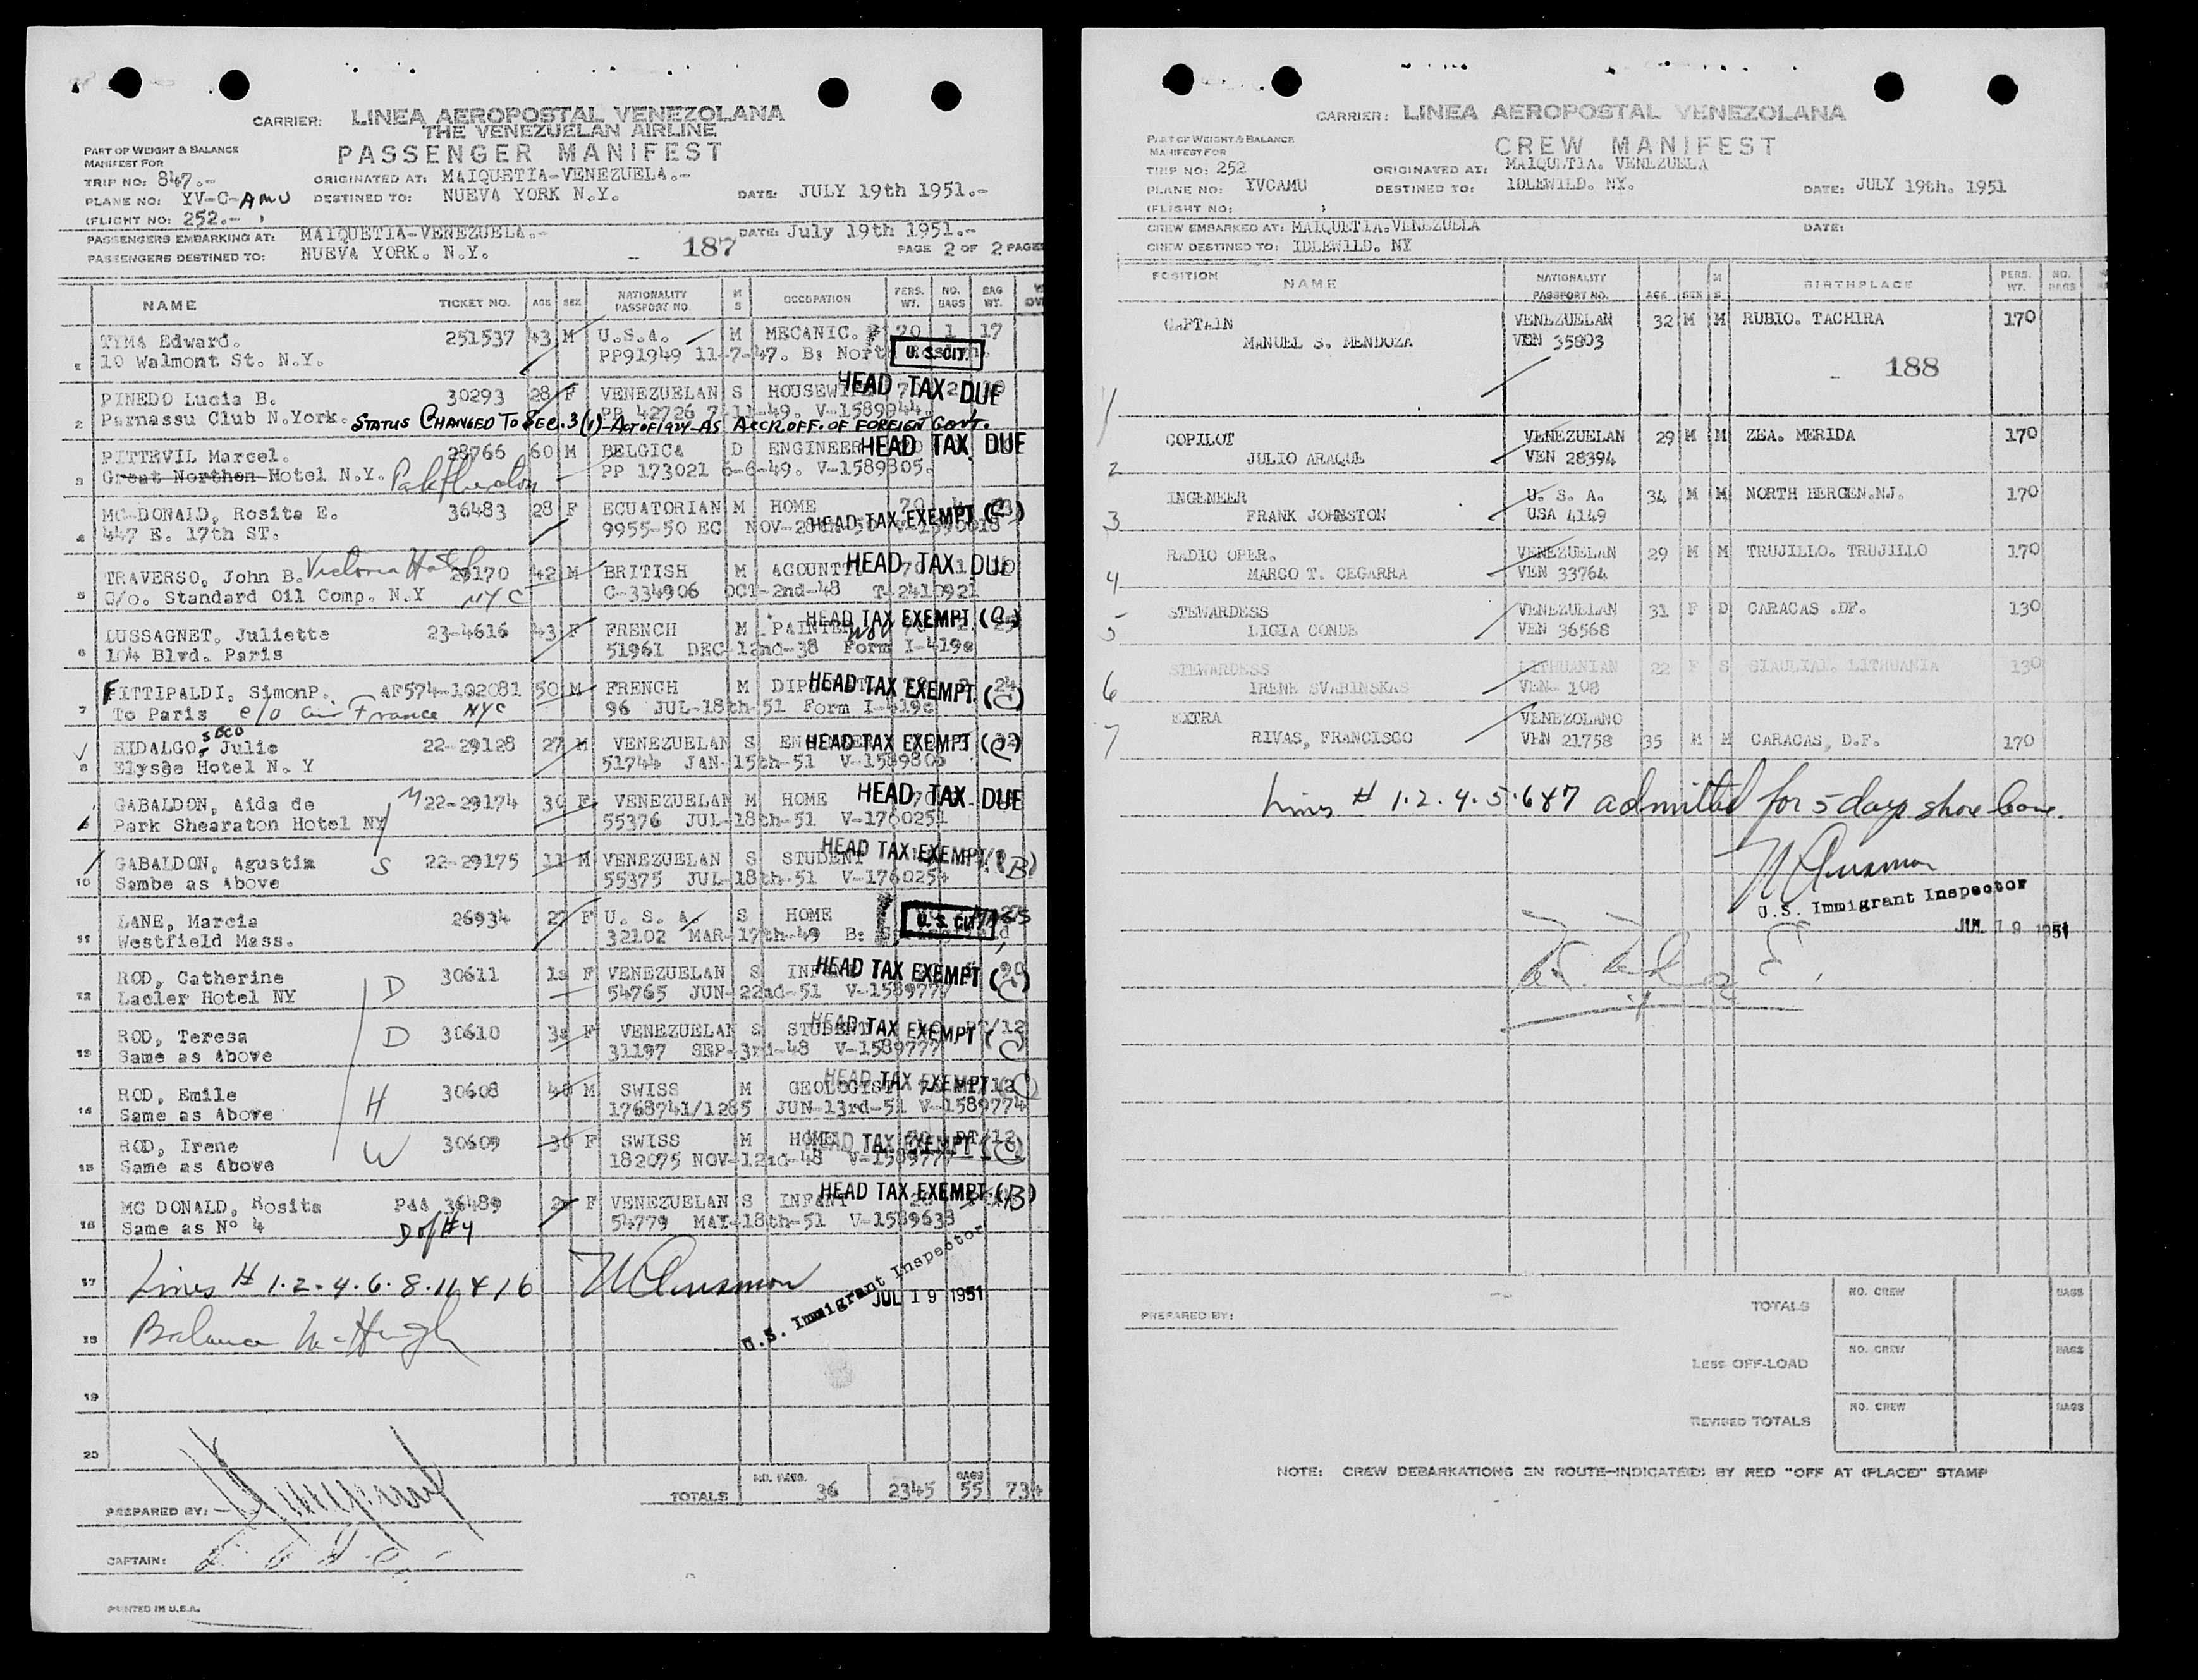 CARRIER: LINEA AEROPOSTAL VENEZOLANA
THE VENEZUELAN AIRLINE
PASSENGER MANIFEST
PART OF WEIGHT & BALANCE
MANIFEST FOR
TRIP NO: 847.-
ORIGINATED AT: MAIQUETIA-VENEZUELA.-
PLANE NO: YV-C-AMU
DESTINED TO: NUEVA YORK N.Y.
DATE: JULY 19th 1951.-
(FLIGHT NO: 252.- )
PASSENGERS EMBARKING AT: MAIQUETIA-VENEZUELA.-
DATE: July 19th 1951.-
PASSENGERS DESTINED TO: NUEVA YORK. N.Y.
187
PAGE 2 OF 2 PAGES
NAME TICKET NO. AGE SEX NATIONALITY PASSPORT NO. M S OCCUPATION PERS. WT. NO. BAGS BAG WT.
1 TYMA Edward. 251537 43 M U.S.A. M MECANIC. 70 1 17
10 Walmont St. N.Y. PP91949 11-7-47. B: North U.S. CIT.
2 PINEDO Lucia B. 30293 28 F VENEZUELAN S HOUSEWIFE HEAD TAX DUE
Parnassu Club N.York. PP 42726 7-11-49. V-1589944.
STATUS CHANGED TO SEC. 3(1)-ACT OF 1924-AS ACCR. OFF. OF FOREIGN GOVT.
3 PITTEVIL Marcel. 28766 60 M BELGICA D ENGINEER HEAD TAX DUE
Great Northen Hotel N.Y. PP 173021 6-6-49. V-1589805.
4 MC-DONALD, Rosita E. 36483 28 F ECUATORIAN M HOME 70
447 E. 17th ST. 9955-50 EC HEAD TAX EXEMPT (C)
5 TRAVERSO, John B. Victoria Hotel 29170 42 M BRITISH M ACOUNTT HEAD TAX DUE
C/o. Standard Oil Comp. N.Y NYC C-334906 OCT-2nd-48 T-2410921
6 LUSSAGNET, Juliette 23-4616 43 F FRENCH M PAINTER HEAD TAX EXEMPT
104 Blvd. Paris 51961 DEC-12nd-38 Form I-419e
7 FITTIPALDI, SimonP. AF574-102081 50 M FRENCH M HEAD TAX EXEMPT (C) 24
To Paris c/o Air France NYC 96 JUL-18th-51 Form I-419e
8 HIDALGO, SECO Julio 22-29128 27 M VENEZUELAN S HEAD TAX EXEMPT (C)
Elysee Hotel N. Y 51744 JAN-15th-51 V-1589806
9 GABALDON, Aida de M 22-29174 30 F VENEZUELAN M HOME HEAD TAX DUE
Park Shearaton Hotel NY 55376 JUL-18th-51 V-1760251
10 GABALDON, Agustin S 22-29175 11 M VENEZUELAN S STUDENT HEAD TAX EXEMPT (B)
Sambe as Above 55375 JUL-18th-51 V-1760254
11 LANE, Marcia 26934 27 F U. S. A. S HOME U.S. CIT.
Westfield Mass. 32102 MAR-17th-49 B:
12 ROD, Catherine D 30611 1s F VENEZUELAN S INFANT HEAD TAX EXEMPT (C)
Lacler Hotel NY 54765 JUN-22nd-51
13 ROD, Teresa D 30610 3s F VENEZUELAN S STUDENT HEAD TAX EXEMPT (C)
Same as Above 31197 SEP-3rd-48 V-1589777
14 ROD, Emile H 30608 40 M SWISS M GEOLOGIST HEAD TAX EXEMPT
Same as Above 1768741/1285 JUN-13rd-51 V-1589774
15 ROD, Irene W 30609 30 F SWISS M HOME HEAD TAX EXEMPT (C)
Same as Above 182075 NOV-12nd-48
16 MC DONALD, Rosita PAA 36489 2 F VENEZUELAN S INFANT HEAD TAX EXEMPT (B)
Same as Nº 4 D of #4 54779 MAY-18th-51 V-1589638
17 Lines # 1.2.4.6.8.11 & 16
U.S. Immigrant Inspector
JUL 19 1951
18 Balance McHugh
19
20
TOTALS NO. PASS. 36 2345 BAGS 55 734
PREPARED BY:
CAPTAIN:
PRINTED IN U.S.A.
CARRIER: LINEA AEROPOSTAL VENEZOLANA
CREW MANIFEST
PART OF WEIGHT & BALANCE
MANIFEST FOR
TRIP NO: 252
ORIGINATED AT: MAIQUETIA. VENEZUELA
PLANE NO: YVCAMU
DESTINED TO: IDLEWILD. NY.
DATE: JULY 19th. 1951
(FLIGHT NO: )
CREW EMBARKED AT: MAIQUETIA.VENEZUELA
DATE:
CREW DESTINED TO: IDLEWILD. NY
POSITION NAME NATIONALITY PASSPORT NO. AGE SEX M S BIRTHPLACE PERS. WT. NO. BAGS
CAPTAIN VENEZUELAN 32 M M RUBIO. TACHIRA 170
MANUEL S. MENDOZA VEN 35803
188
1
COPILOT VENEZUELAN 29 M M ZEA. MERIDA 170
2 JULIO ARAQUE VEN 28394
INGENEER U. S. A. 34 M M NORTH BERGEN.NJ. 170
3 FRANK JOHNSTON USA 4149
RADIO OPER. VENEZUELAN 29 M M TRUJILLO. TRUJILLO 170
4 MARCO T. CEGARRA VEN 33764
STEWARDESS VENEZUELAN 31 F D CARACAS .DF. 130
5 LIGIA CONDE VEN 36568
STEWARDESS LITHUANIAN 22 F S SIAULIAI. LITHUANIA 130
6 IRENE SVABINSKAS VEN- 108
EXTRA VENEZOLANO
7 RIVAS, FRANCISCO VEN 21758 35 M M CARACAS, D.F. 170
Lines # 1.2.4.5.6&7 admitted for 5 days shore leave.
U.S. Immigrant Inspector
JUL 19 1951
PREPARED BY:
TOTALS NO. CREW BAGS
LESS OFF-LOAD NO. CREW BAGS
REVISED TOTALS NO. CREW BAGS
NOTE: CREW DEBARKATIONS EN ROUTE-INDICATED: BY RED "OFF AT (PLACE)" STAMP